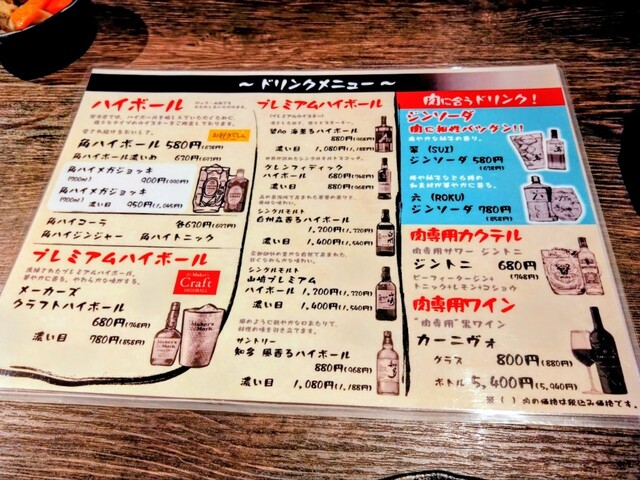 ～ドリンクメニュー～
ハイボール
お好きでしょ
角ハイボール 580円(638円)
角ハイボール濃いめ 670円(737円)
角ハイメガジョッキ
(700ml) 900円(990円)
角ハイメガジョッキ
(700ml) 濃い目 950円(1,045円)
角ハイコーラ
各630円(693円)
角ハイジンジャー 角ハイトニック
プレミアムハイボール
メーカーズ
クラフトハイボール
680円(748円)
濃い目 780円(858円)
Maker's
Craft
HIGHBALL
プレミアムハイボール
碧Ao 海薫るハイボール
880円(968円)
濃い目 1,080円(1,188円)
グレンフィディック
ハイボール 680円(748円)
濃い目 880円(968円)
シングルモルト
白州森香るハイボール
1,200円(1,320円)
濃い目 1,400円(1,540円)
シングルモルト
山崎プレミアム
ハイボール 1,200円(1,320円)
濃い目 1,400円(1,540円)
サントリー
知多 風香るハイボール
880円(968円)
濃い目 1,080円(1,188円)
肉に合うドリンク!
ジンソーダ
肉に相性バツグン!!
翠 (SUI)
ジンソーダ 580円
(638円)
六 (ROKU)
ジンソーダ 780円
(858円)
肉専用カクテル
肉専用サワー ジントニ
ジントニ 680円
(748円)
ビーフィータージン+
トニック+レモン+コショウ
肉専用ワイン
"肉専用"黒ワイン
カーニヴォ
グラス 800円(880円)
ボトル 5,400円(5,940円)
※( )内の価格は税込み価格です。